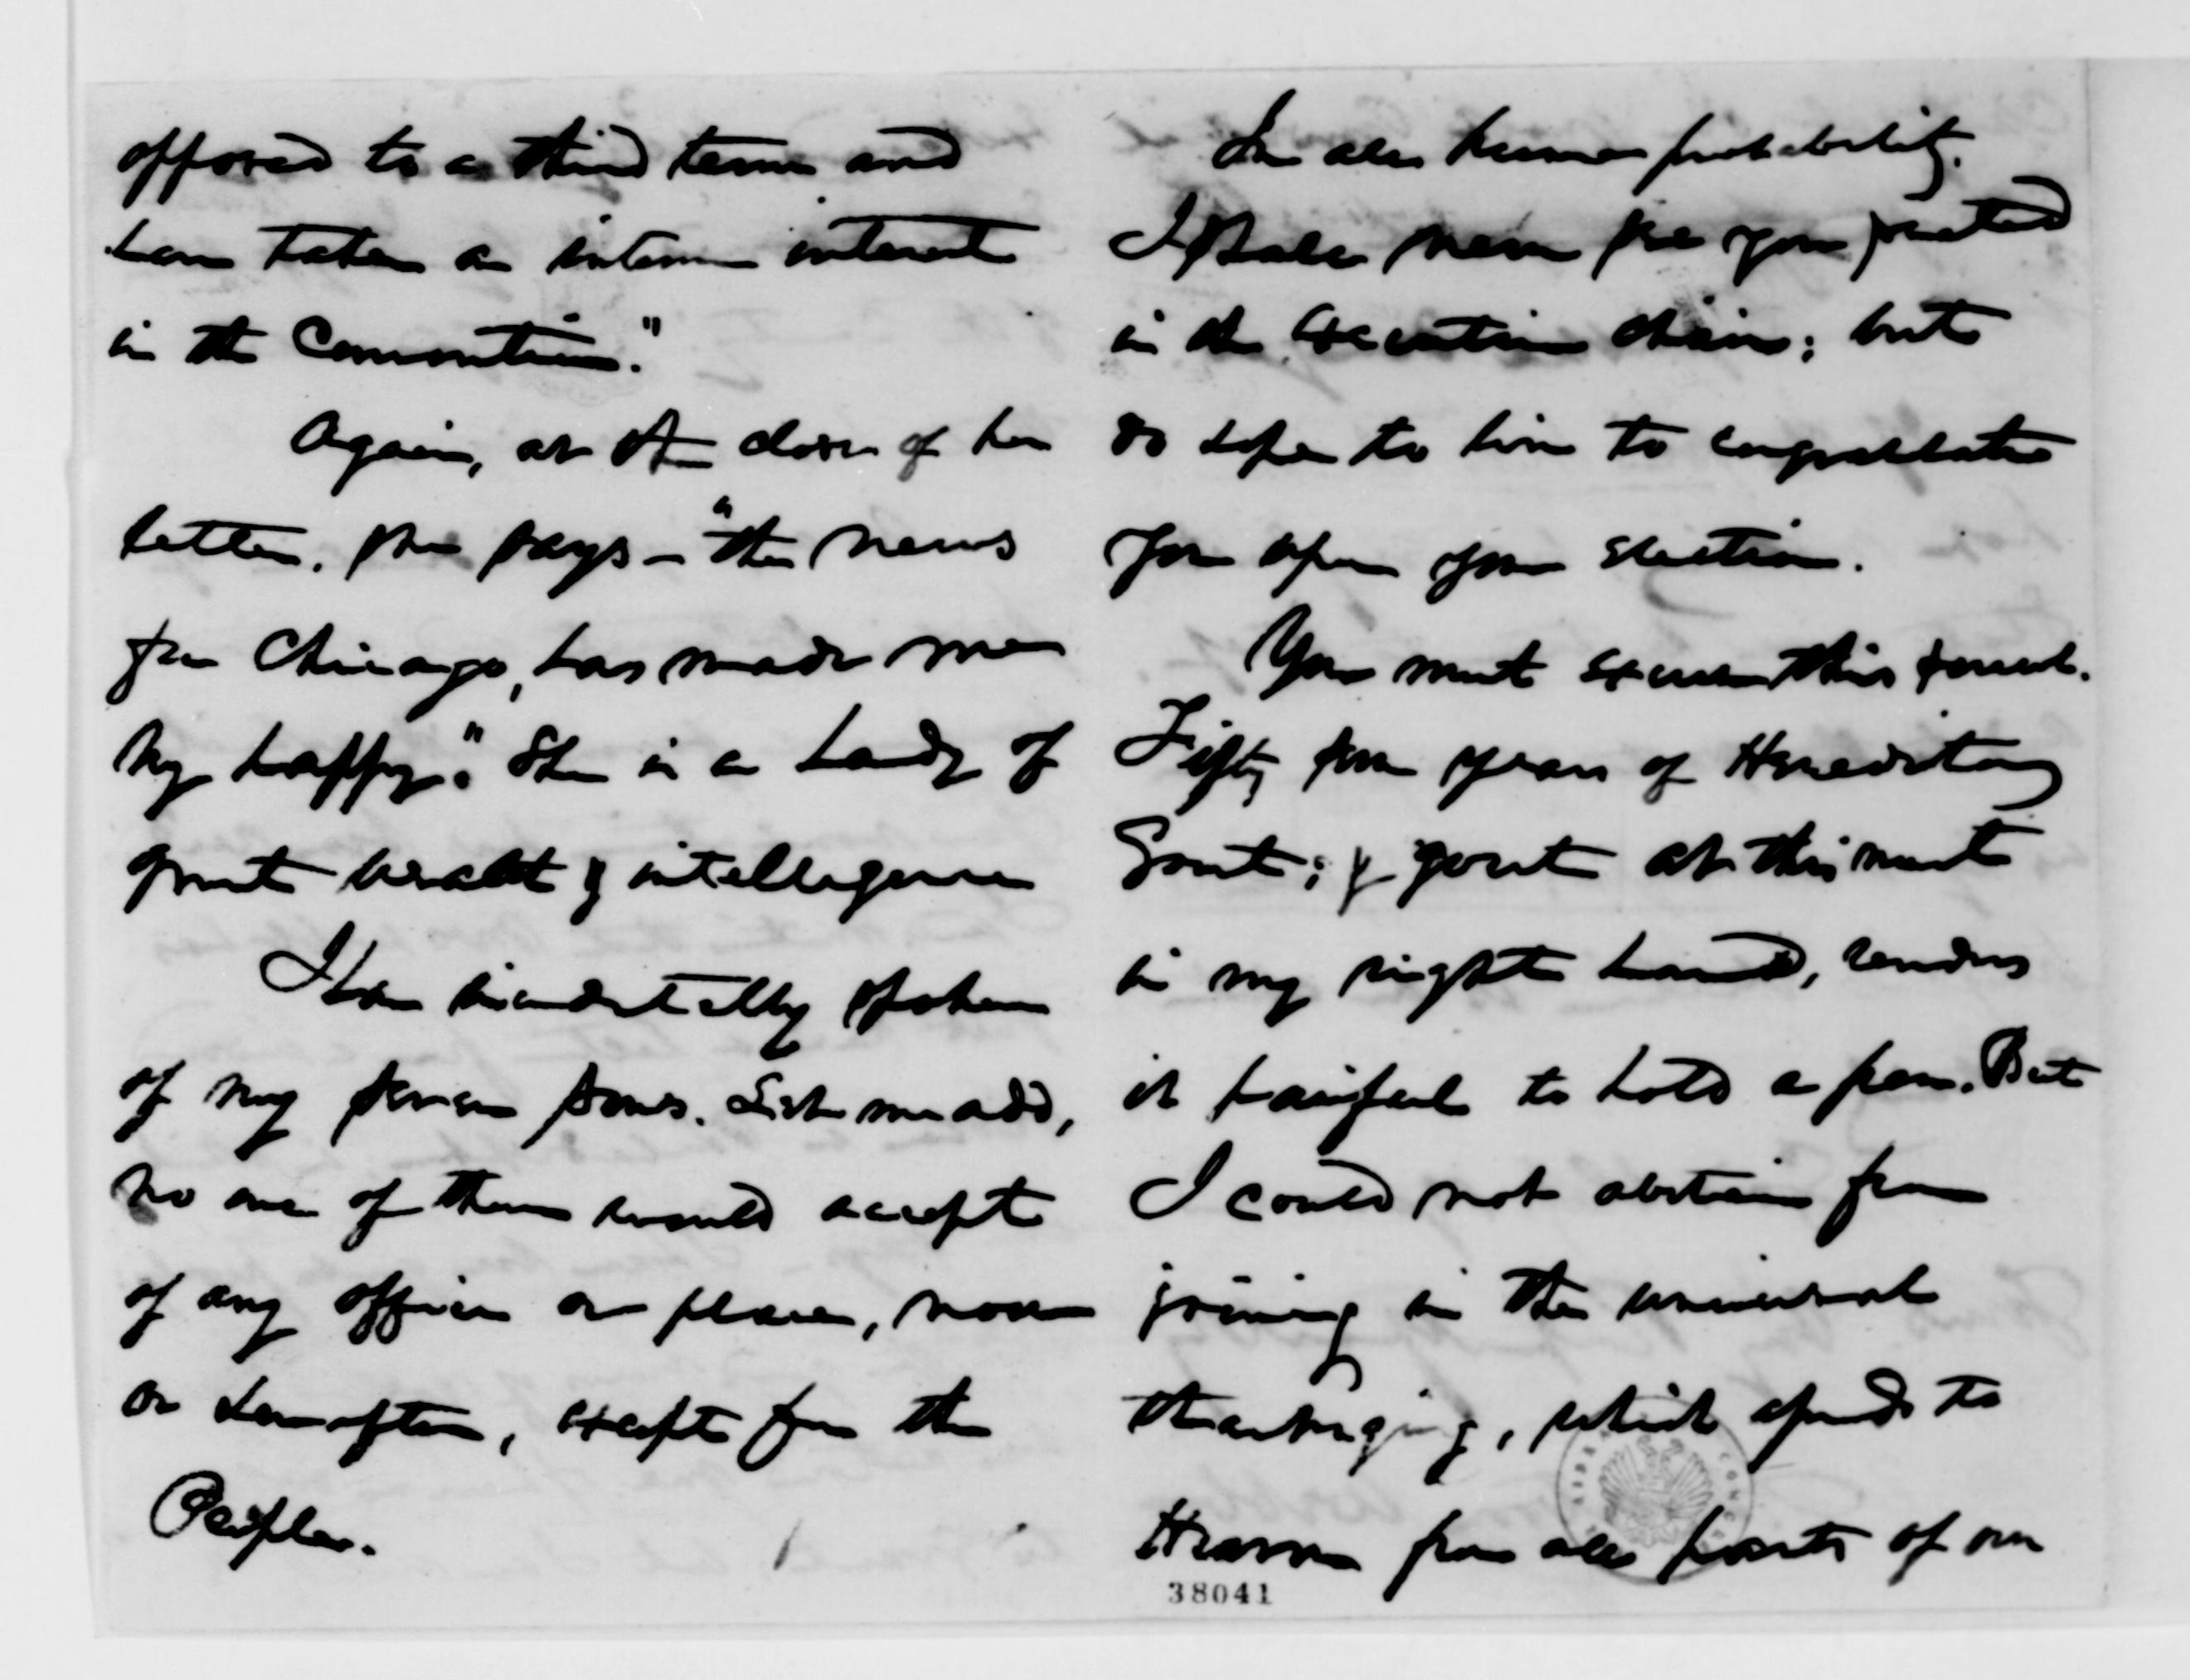 opposed to a third term and
have taken an intense interest
in the Convention."
Again, at the close of her
letter, she says — "the news
from Chicago, has made me
very happy." She is a Lady of
great wealth & intelligence
I have incidentally spoken
of my seven sons. Let me add,
no one of them would accept
of any office or place, now
or hereafter, except from the
People.
In all human probability,
I shall never see you seated
in the Executive chair; but
do hope to live to congratulate
you upon your election.
You must excuse this scrawl.
Fifty four years of Hereditary
Gout; & gout at this
in my right hand, renders
it painful to hold a pen. But
I could not abstain from
joining in the universal
thanksgiving, which ascends to
Heaven from all parts of our
38041